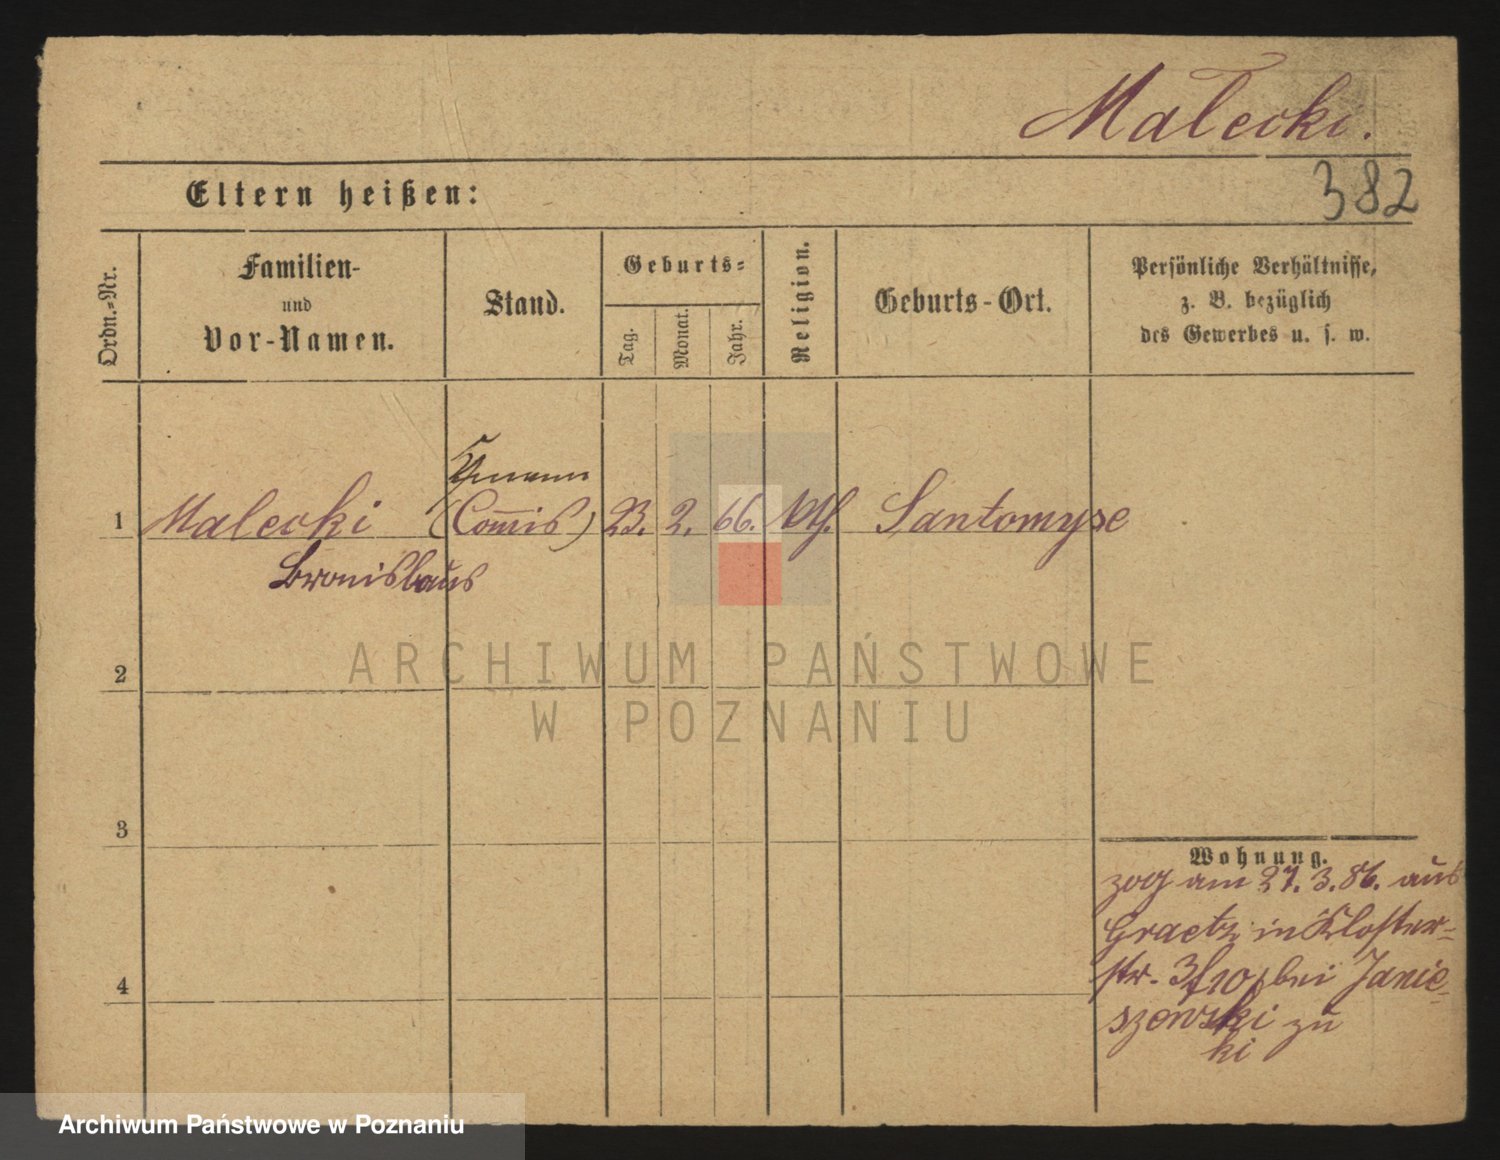 Małecki.
Eltern heißen:
382
Ordn.-Nr.
Familien-
und
Vor-Namen.
Stand.
Geburts-
Tag.
Monat.
Jahr.
Religion.
Geburts-Ort.
Persönliche Verhältnisse,
z. B. bezüglich
des Gewerbes u. s. w.
1 Malecki (Com̅is) 23. 2. 66. kth. Santomysc
Bronislaus
2
ARCHIWUM PAŃSTWOWE
W POZNANIU
3
Wohnung.
zog am 27. 3. 86. aus
Graetz in Kloster-
str. 3/10 bei Janie-
4
szewski zu
ki
Archiwum Państwowe w Poznaniu